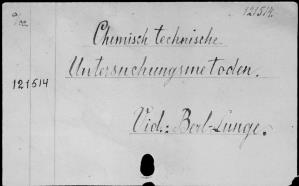 121514.
Chemisch technische
Untersuchungsmetoden.
121514
Vid.: Berl-Lunge.